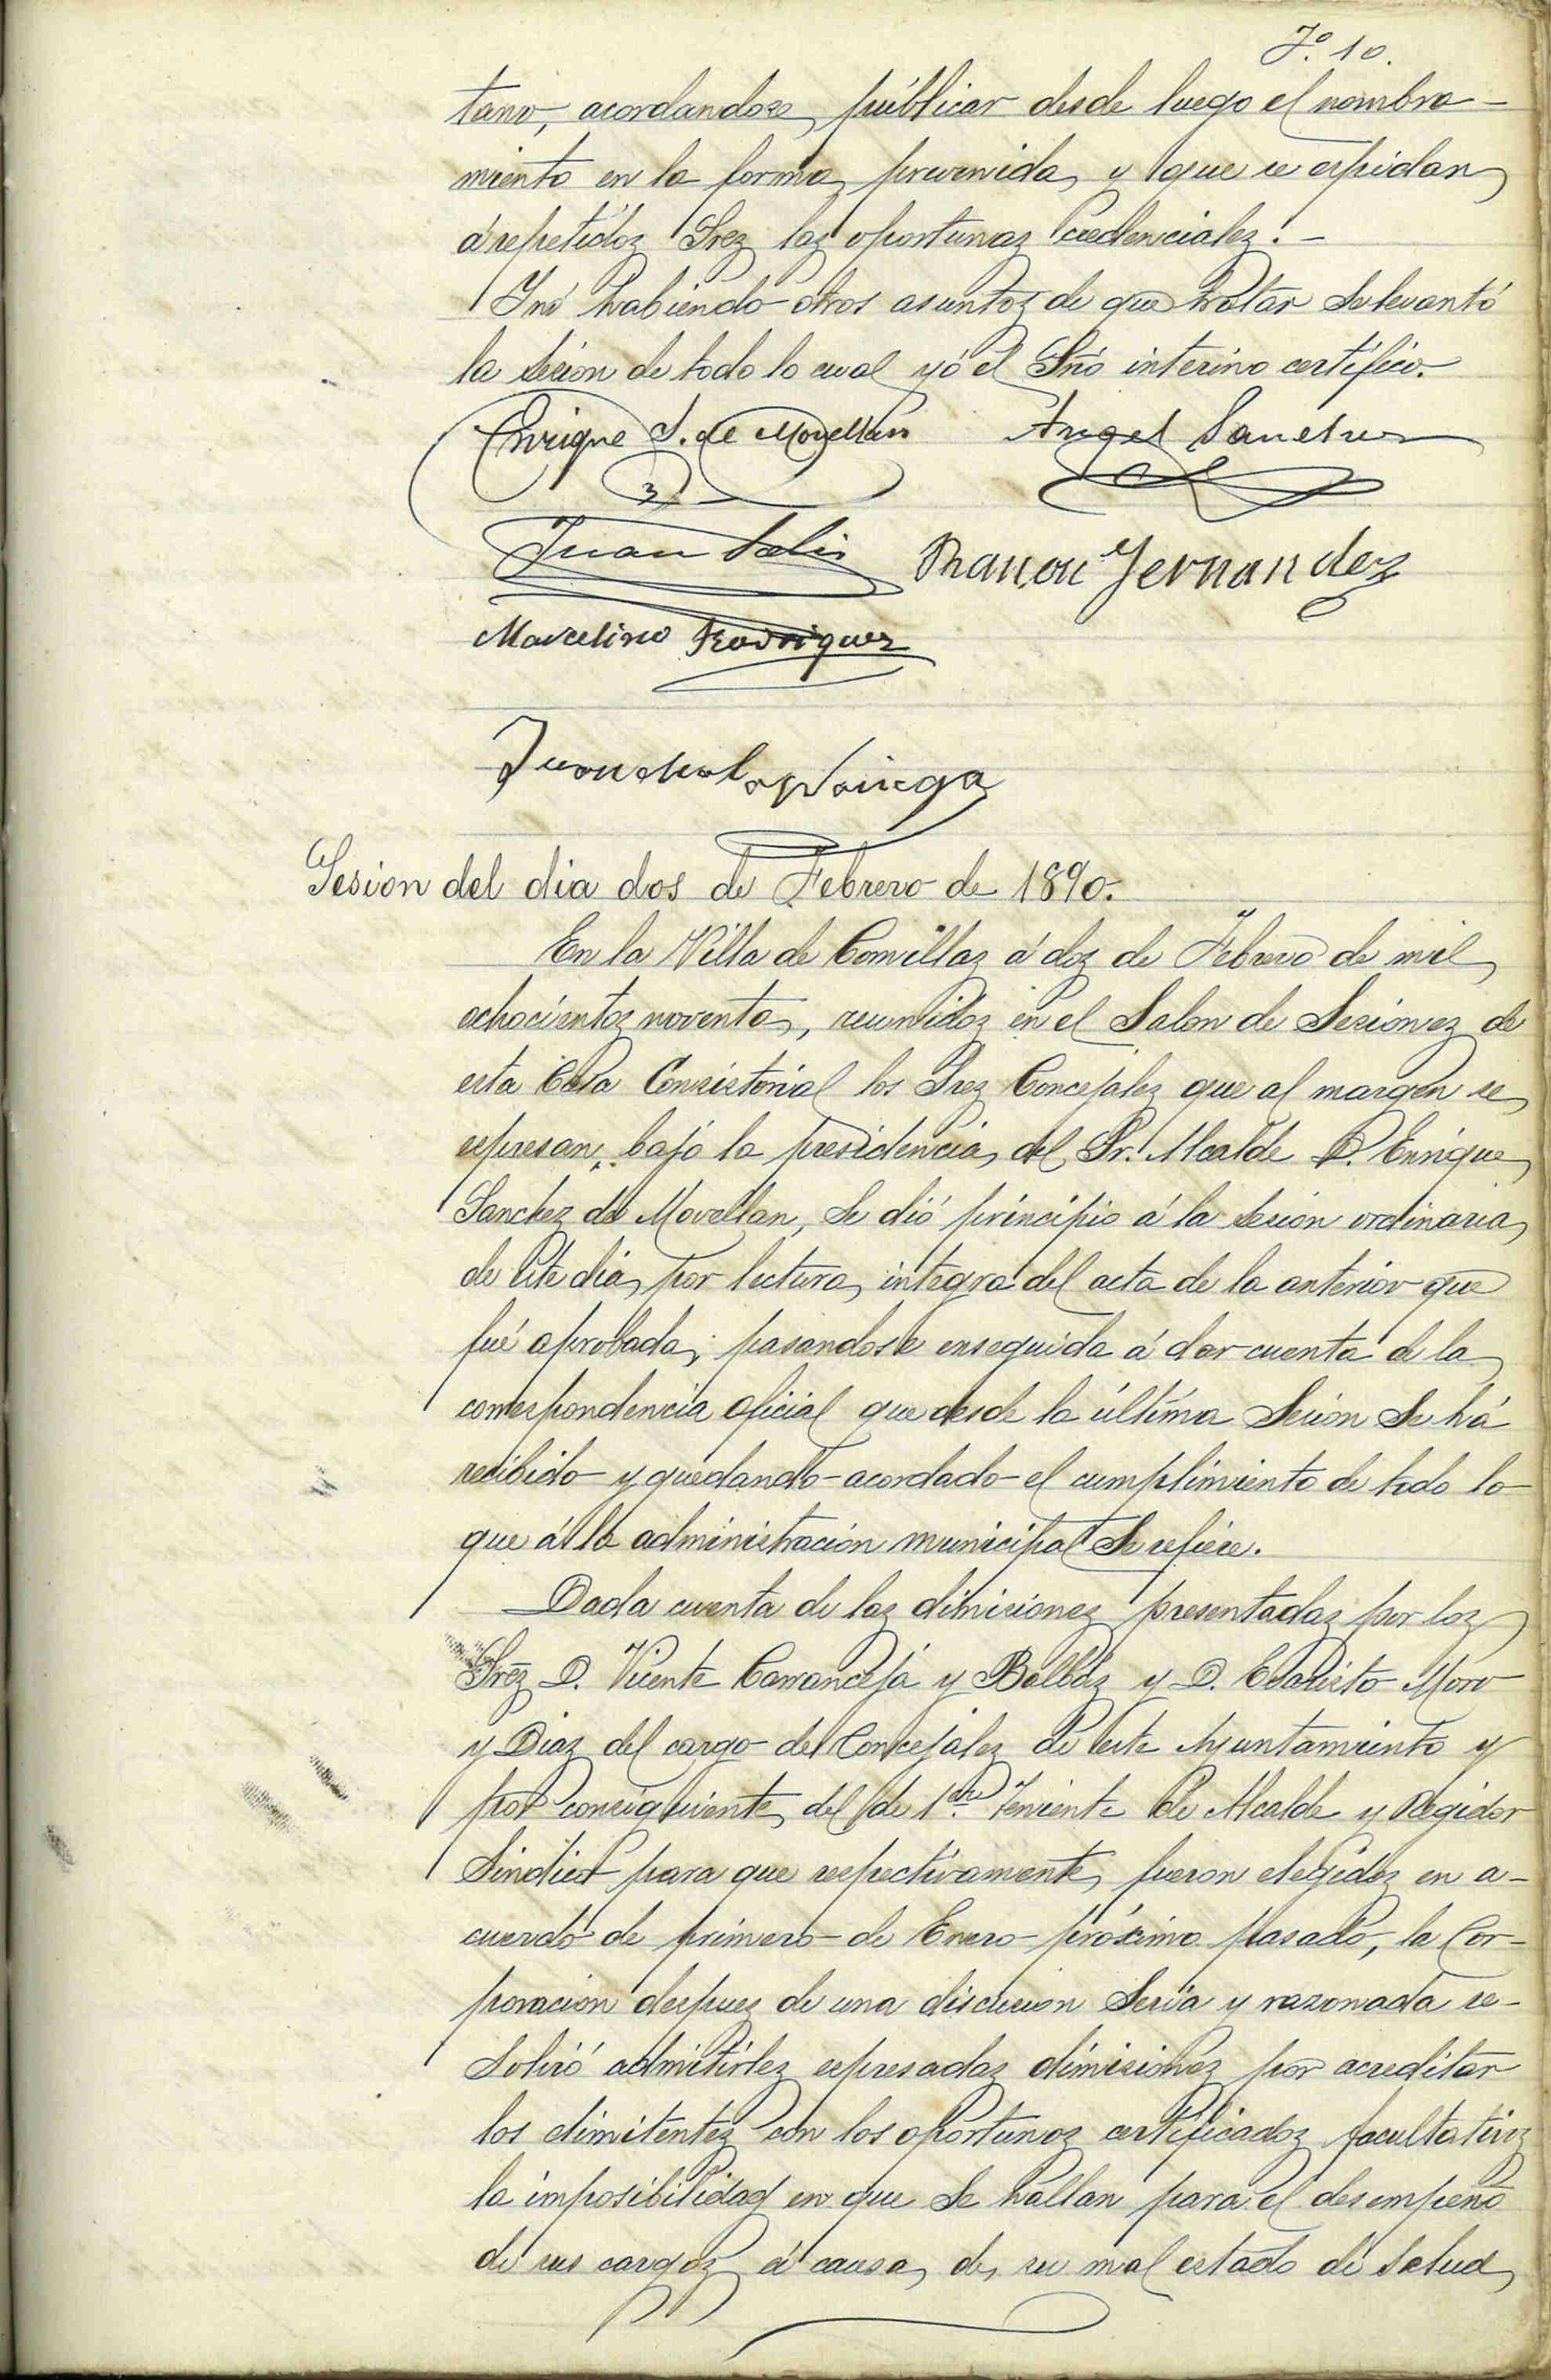 Fº 10.
tano, acordandose públicar desde luego el nombra-
miento en la forma prevenida, y que se espidan
á repetidos Sres las oportunas credenciales. -
Y nó habiendo otros asuntos de que tratar se levantó
la sesion de todo lo cual yó el Srio interino certifico.
Enrique S. de Movellan Angel Sanchez
Juan Ramon Fernandez
Marcelino Rodriguez
Noriega
Sesion del dia dos de Febrero de 1890.
En la Villa de Comillas á dos de Febrero de mil
ochocientos noventa, reunidos en el Salon de Sesiones de
esta Casa Consistorial los Sres Concejales que al margen se
espresan, bajo la presidencia del Sr. Alcalde D. Enrique
Sanchez de Movellan, se dió principio á la sesion ordinaria
de este dia, por lectura integra del acta de la anterior que
fué aprobada; pasandose enseguida á dar cuenta de la
correspondencia oficial que desde la última Sesion se há
recibido y quedando acordado el cumplimiento de todo lo
que á la administracion municipal se refiere.
Dada cuenta de las dimisiones presentadas por los
Sres D. Vicente Carranceja y Balbás y D. Evaristo Moro
y Diaz del cargo de Concejales de este Ayuntamiento y
por consiguiente, del de 1er. Teniente de Alcalde y Regidor
Sindico para que respectivamente, fueron elegidos en a-
cuerdo de primero de Enero próximo pasado, la Cor-
poracion despues de una discusion séria y razonada re-
solvió admitirles espresadas dimisiones por acreditar
los dimitentes con los oportunos certificados facultativos
la imposibilidad en que se hallan para el desempeño
de sus cargos á causa de su mal estado de salud,